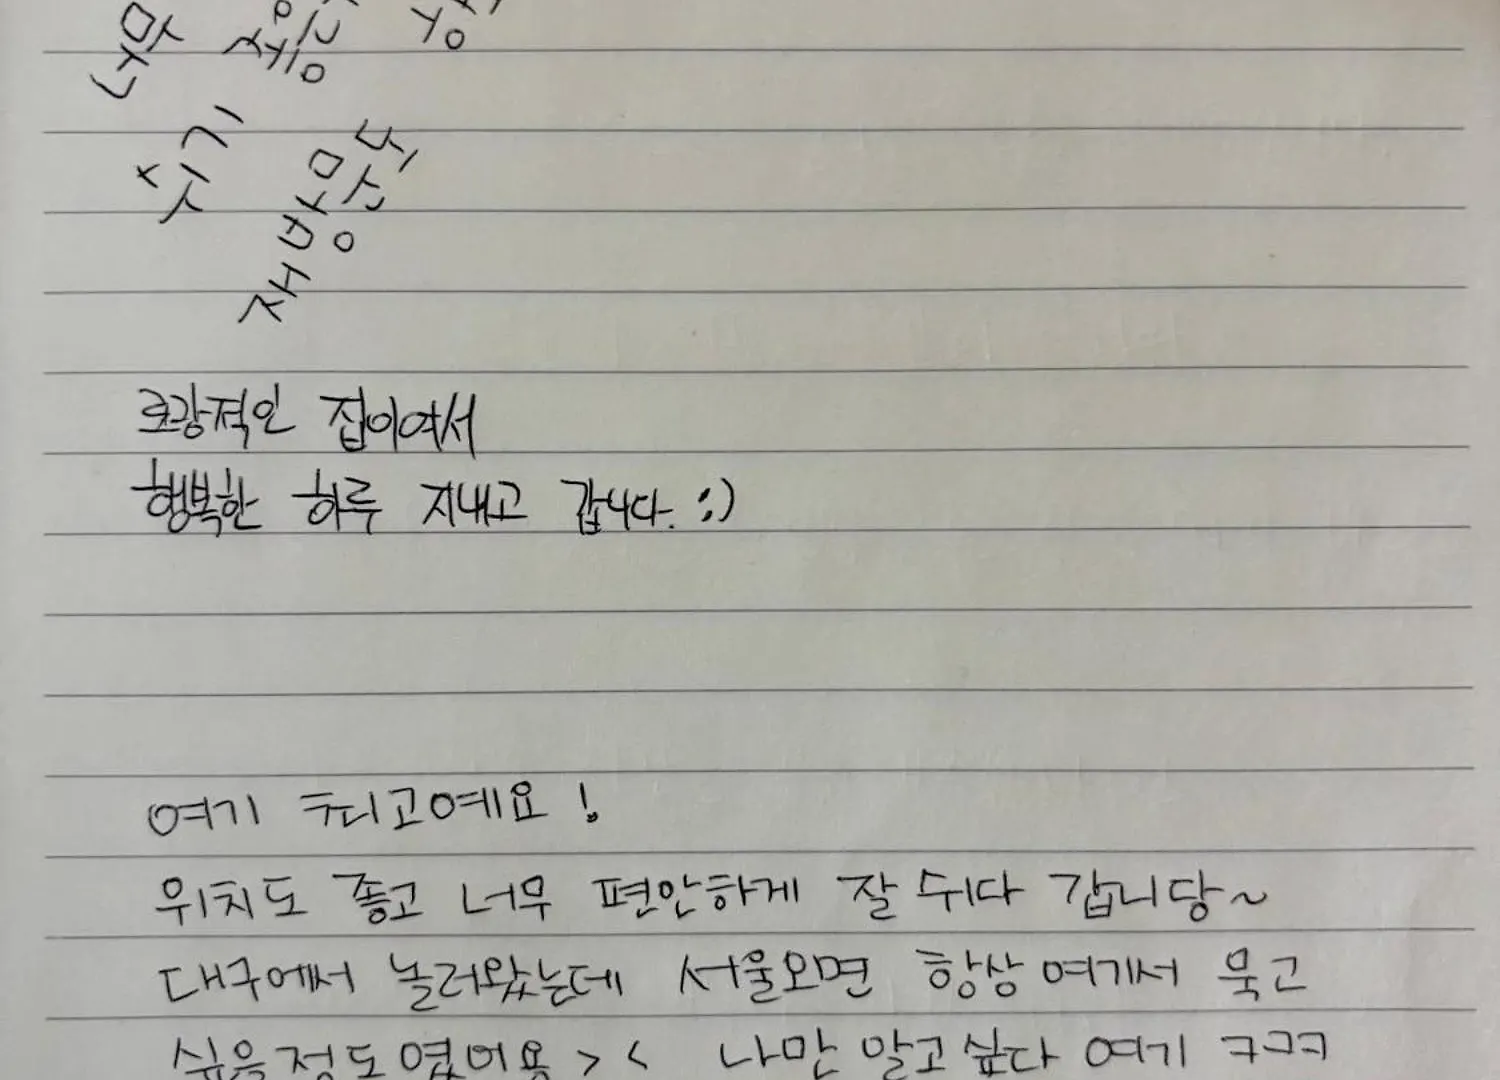 너무
신기
재방문
로광적인 집이여서
행복한 하루 지내고 갑니다. :)
여기 취고예요!
위치도 좋고 너무 편안하게 잘 쉬다 갑니당~
대구에서 놀러왔는데 서울오면 항상 여기서 묵고
싶을정도였어용 > < 나만 알고싶다 여기 ㅋㅋㅋ